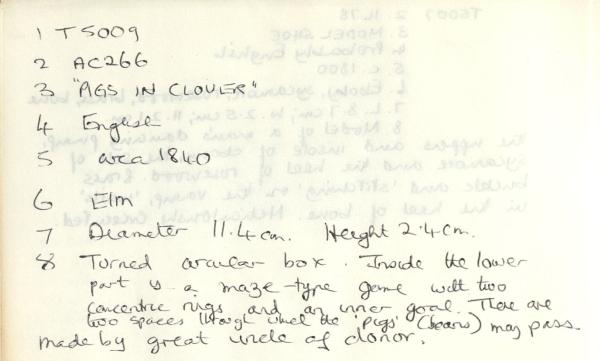 1 T5009
2 AC266
3 "PIGS IN CLOVER"
4 English
5 circa 1840
6 Elm
7 Diameter 11.4cm. Height 2.4cm.
8 Turned circular box. Inside the lower
part is a maze-type game with two
concentric rings and an inner goal. There are
two spaces through which the 'pigs' (beans) may pass.
made by great uncle of donor.